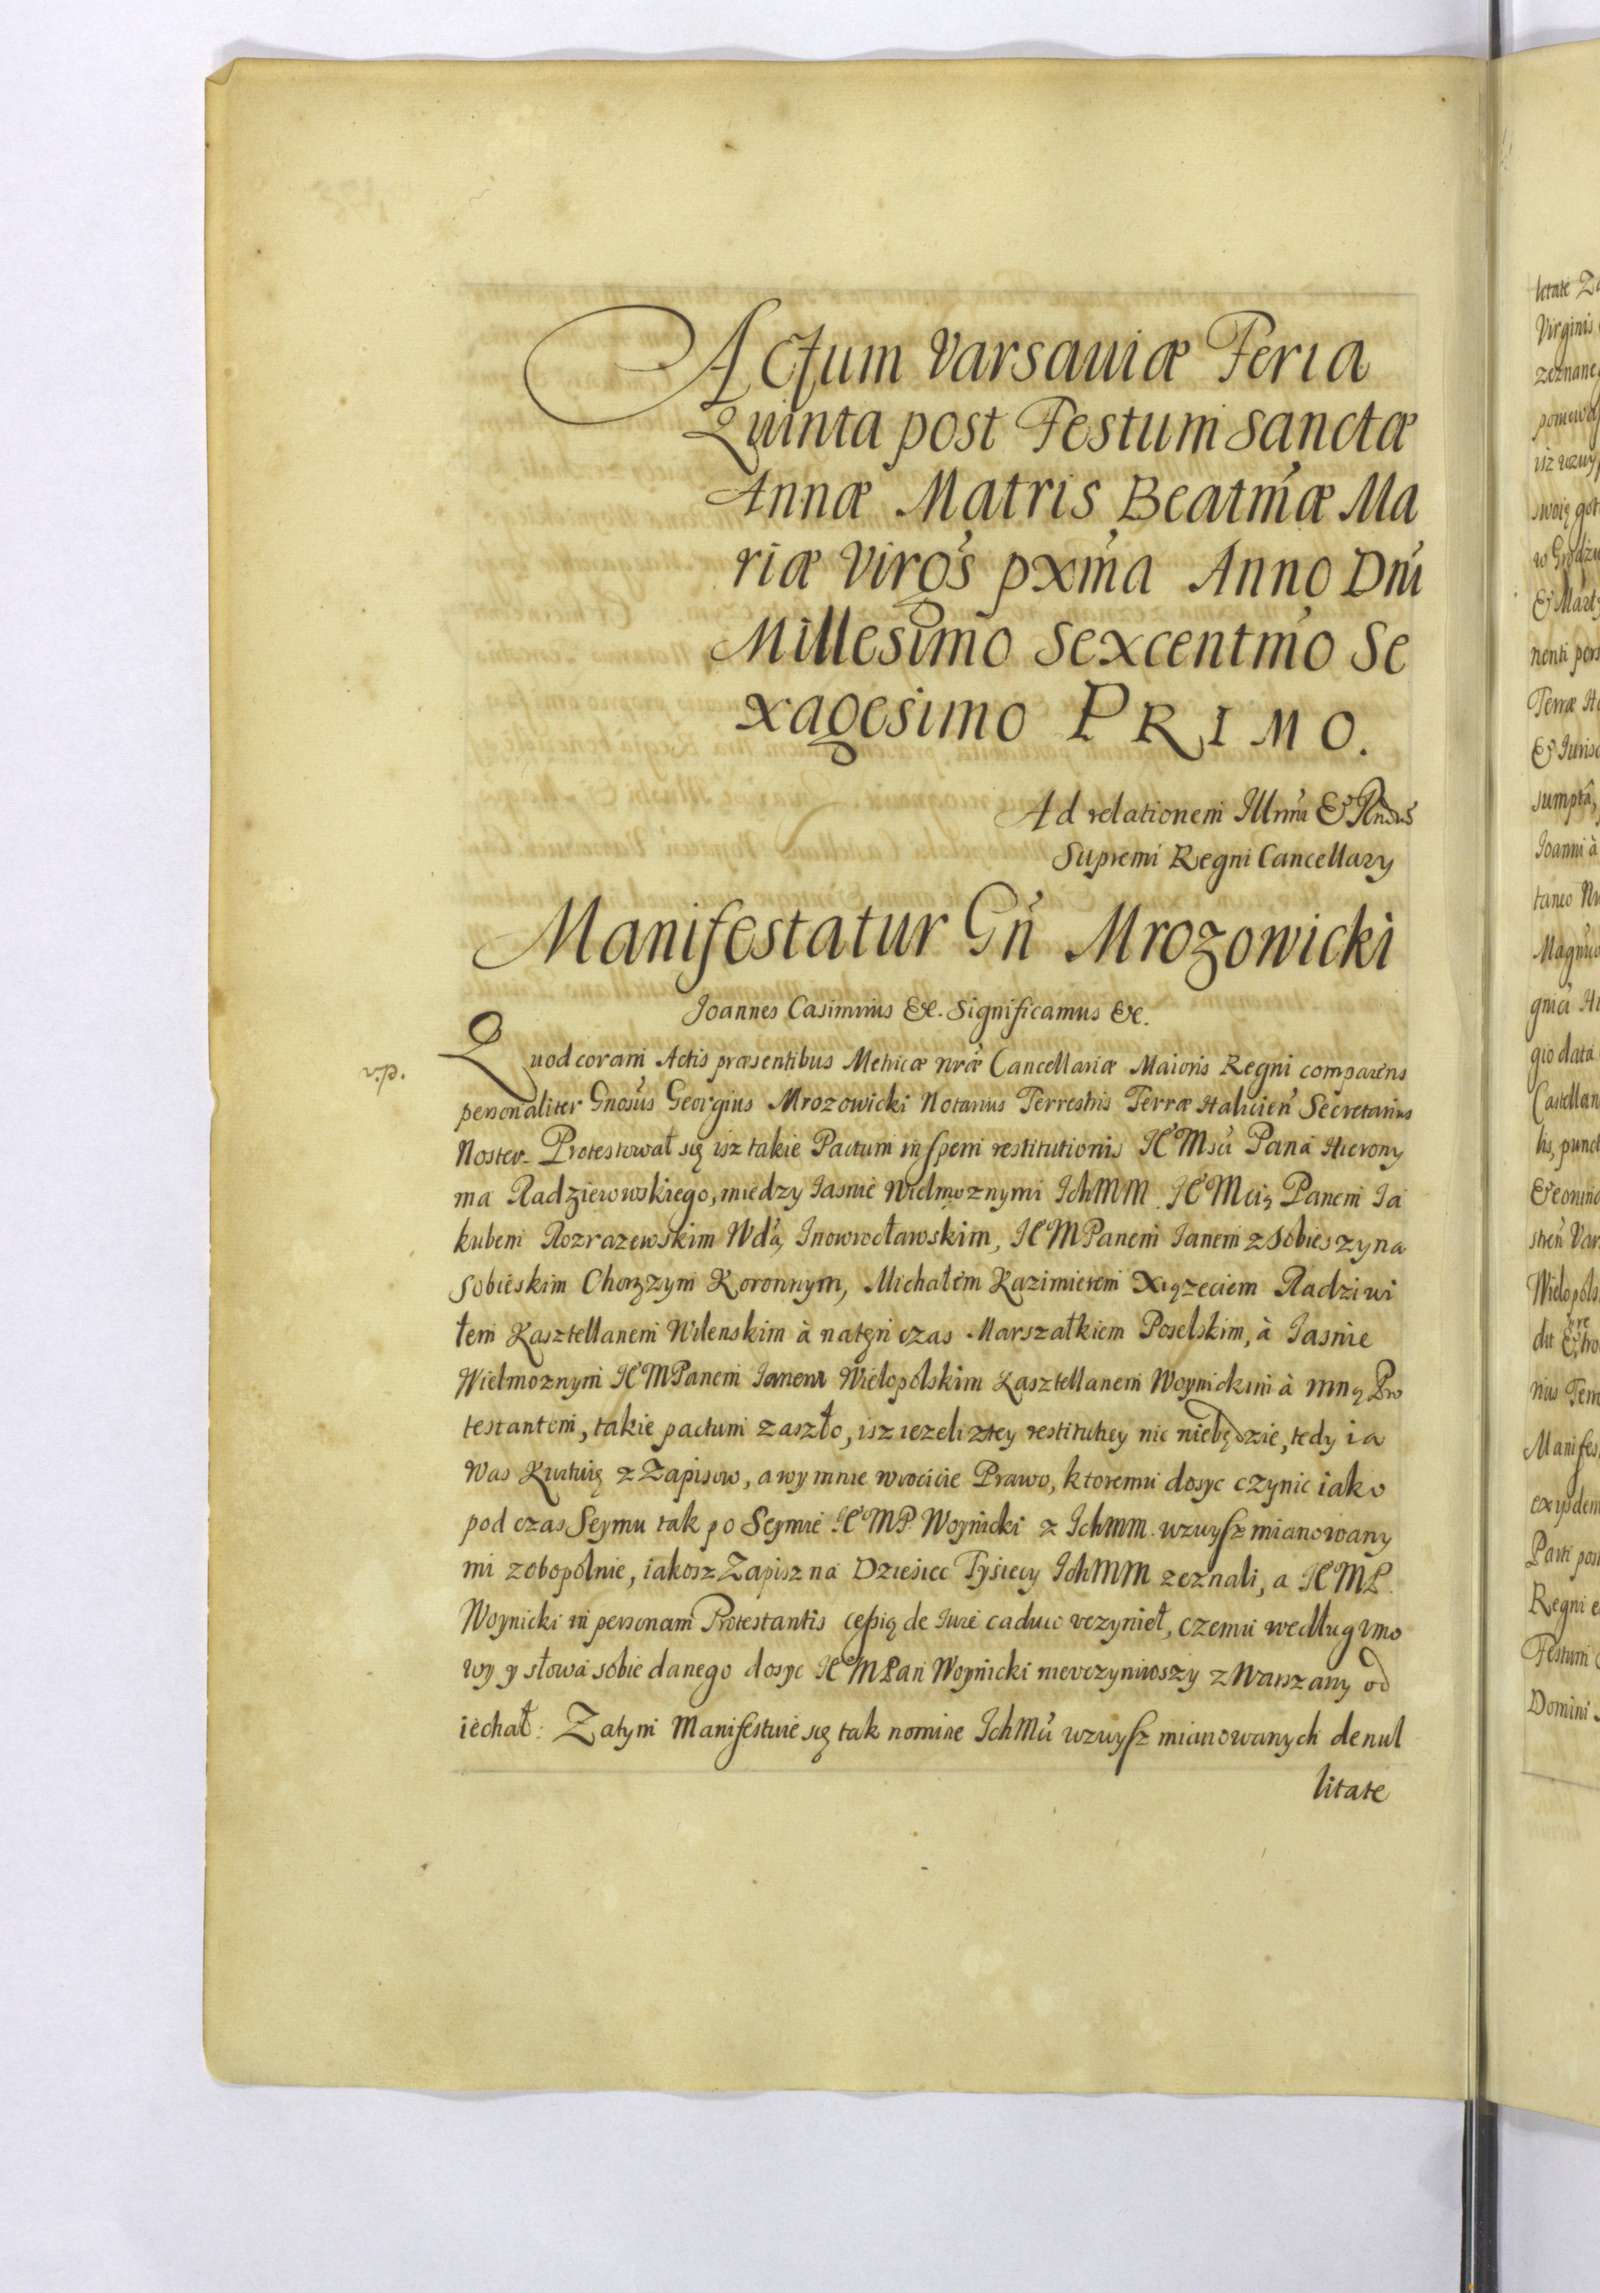 Actum Varsauiæ Feria
Quinta post Festum Sanctæ
Annæ Matris Beatmæ Ma
riæ Virgs pxma Anno Dni
Millesimo Sexcentmo Se
xagesimo PRIMO.
Ad relationem Illmi & Rndus
Supremi Regni Cancellary
Manifestatur Gn Mrozowicki
Joannes Casimirus &c. Significamus &c.
Quod coram Actis præsentibus Metricæ nræ Cancellariæ Maioris Regni comparens
personaliter Gnosus Georgius Mrozowicki Notarius Terrestris Terræ Halicien Secretarius
Noster. Protestował się isz takie Pactum in spem restitutionis JE Msci Pana Hierony
ma Radzieiowskiego, miedzy Iasnie Wielmoznymi IchMM. JE Mcią Panem Ia
kubem Rozrazewskim Wdą Inowrocławskim, JE MPanem Ianem z Sobieszyna
Sobieskim Chorązym Koronnym, Michałem Kazimierem Xiązeciem Radziwi
łem Kasztellanem Wilenskim à natęn czas Marszałkiem Poselskim, à Iasnie
Wielmoznym JE MPanem Ianem Wielopolskim Kasztellanem Woynickim à mną Pro
testantem, takie pactum zaszło, isz iezeli ztey restitutiey nic niebędzie, tedy ia
Was Kwituię z Zapisow, a wy mnie wrocicie Prawo, ktoremu dosyc czynic iako
pod czas Seymu tak po Seymie JE MP Woynicki z Ichmm. wzwysz mianowany
mi zobopolnie, iakosz Zapisz na Dziesiec Tysiecy IchMM zeznali, a JE MP.
Woynicki in personam Protestantis cessią de Iure caduco vczynieł, czemu według vmo
wy y słowa sobie danego dosyc JE MPan Woynicki nievczyniwszy z Warszawy od
iechał: Zatym Manifestuie się tak nomine IchMci wzwysz mianowanych de nul
litate